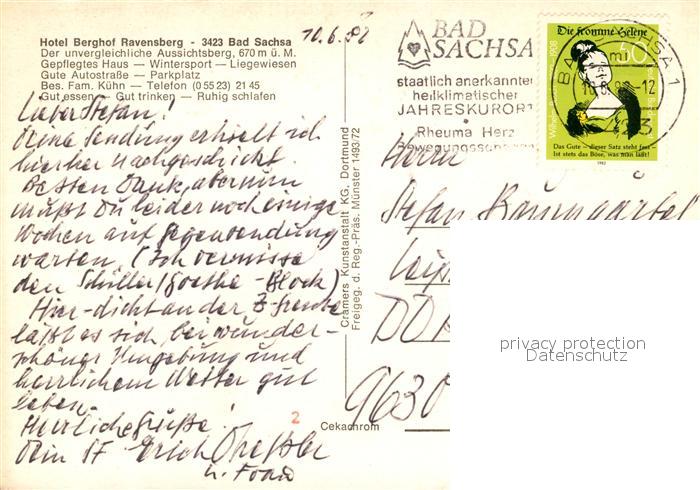 Hotel Berghof Ravensberg - 3423 Bad Sachsa
Der unvergleichliche Aussichtsberg, 670 m ü. M.
Gepflegtes Haus — Wintersport — Liegewiesen
Gute Autostraße — Parkplatz
Bes. Fam. Kühn — Telefon (0 55 23) 21 45
Gut essen — Gut trinken — Ruhig schlafen
10.6.82
Lieber Stefan!
Deine Sendung erhielt ich
hierher nachgeschickt.
Besten Dank, aber nun
mußt Du leider noch einige
Wochen auf Gegensendung
warten. (Ich vermisse
den Schiller/Goethe-Block)
Hier - dicht an der Z-Grenze
läßt es sich bei wunder-
schöner Umgebung und
herrlichem Wetter gut
leben.
Herrliche Grüße!
Dein SF Erich
u. Frau
2
Cramers Kunstanstalt KG. Dortmund
Freigeg. d. Reg.-Präs. Münster 1493/72
Cekachrom
BAD
SACHSA
staatlich anerkannter
heilklimatischer
JAHRESKURORT
Rheuma Herz
BAD SACHSA 1
-12
Die fromme Helene
50
Wilhelm
1908
Das Gute — dieser Satz steht fest —
Ist stets das Böse, was man läßt!
1982
Herrn
Stefan Baumgärtel
Leip
DDR
9630
privacy protection
Datenschutz